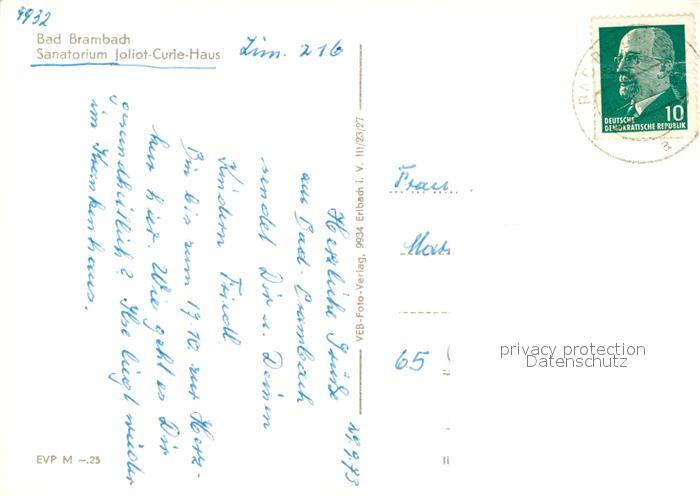 9932
Bad Brambach
Sanatorium Joliot-Curie-Haus
Zim. 216
29.9.73
Herzliche Grüße
aus Bad Brambach
sendet Dir u. Deinen
Kindern Friedl.
Bin bis zum 19.10. zur Herz-
kur hier. Wie geht es Dir
gesundheitlich? Ilse liegt wieder
im Krankenhaus.
EVP M –.25
VEB-Foto-Verlag, 9934 Erlbach i. V. III/23/27
10
DEUTSCHE
DEMOKRATISCHE REPUBLIK
BAD
a
Frau
65
privacy protection
Datenschutz